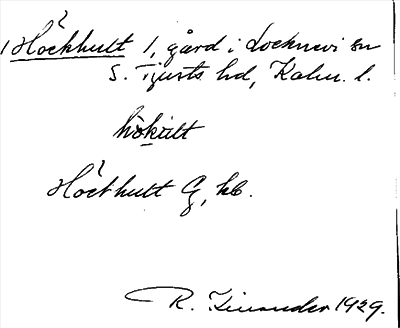 Höckhult 1, gård i Locknevi sn
S. Tjusts hd, Kalm. l.
hökult
Höckhult G, kb.
R. Linander 1929.